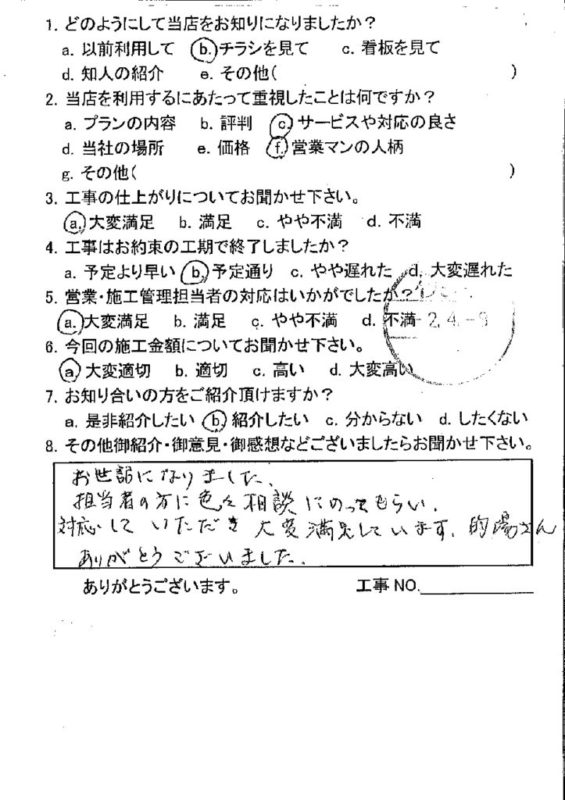 1. どのようにして当店をお知りになりましたか?
a. 以前利用して b. チラシを見て c. 看板を見て
d. 知人の紹介 e. その他( )
2. 当店を利用するにあたって重視したことは何ですか?
a. プランの内容 b. 評判 c. サービスや対応の良さ
d. 当社の場所 e. 価格 f. 営業マンの人柄
g. その他( )
3. 工事の仕上がりについてお聞かせ下さい。
a. 大変満足 b. 満足 c. やや不満 d. 不満
4. 工事はお約束の工期で終了しましたか?
a. 予定より早い b. 予定通り c. やや遅れた d. 大変遅れた
5. 営業・施工管理担当者の対応はいかがでしたか?
a. 大変満足 b. 満足 c. やや不満 d. 不満
2.4.-9
6. 今回の施工金額についてお聞かせ下さい。
a. 大変適切 b. 適切 c. 高い d. 大変高い
7. お知り合いの方をご紹介頂けますか?
a. 是非紹介したい b. 紹介したい c. 分からない d. したくない
8. その他御紹介・御意見・御感想などございましたらお聞かせ下さい。
お世話になりました、
担当者の方に色々相談にのってもらい、
対応していただき大変満足しています、的場さん
ありがとうございました、
ありがとうございます。 工事 NO.